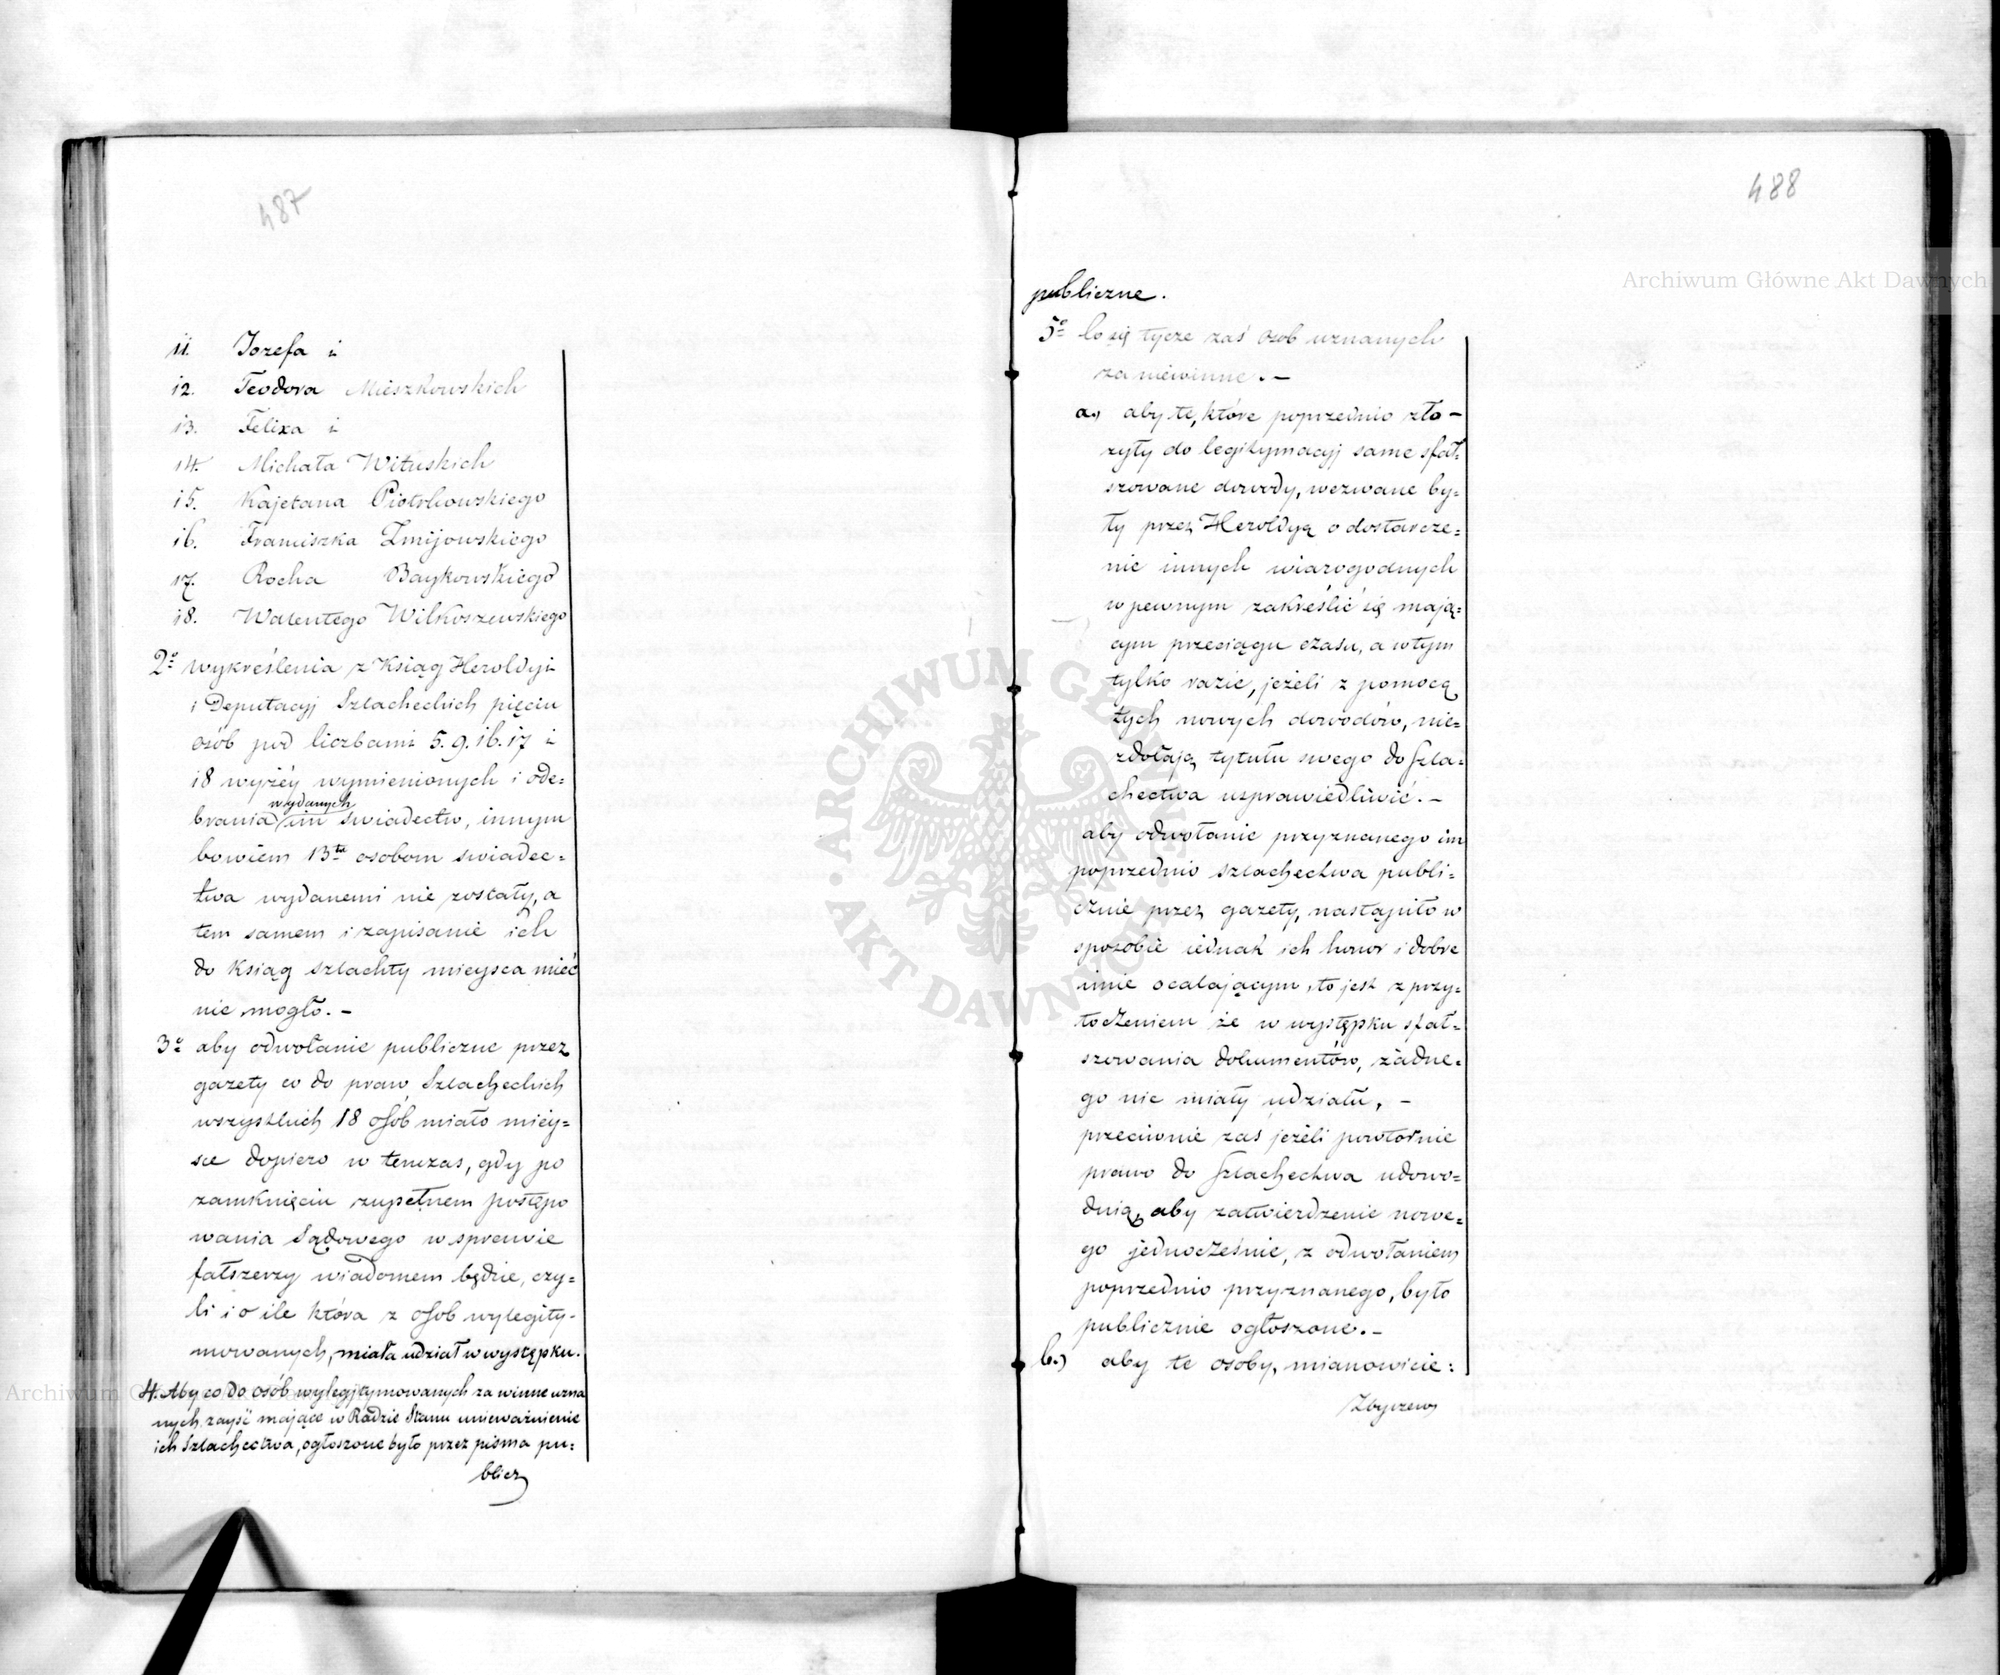 487
11. Jozefa i
12. Teodora Mieszkowskich
13. Felixa i
14. Michała Wituskich
15. Kajetana Piotrkowskiego
16. Franciszka Żmijowskiego
17. Rocha Baykowskiego
18. Walentego Wilkoszewskiego
2o wykreślenia z Ksiąg Heroldyi
i Deputacyj Szlacheckich pięciu
osób pod liczbami 5. 9. 16. 17 i
18 wyżéy wymienionych i ode=
wydanych
brania im swiadectw, innym
bowiem 13tu osobom swiadec=
twa wydanemi nie zostały, a
tem samem i zapisanie ich
do Ksiąg szlachty mieysca mieć
nie mogło. –
3o aby odwołanie publiczne przez
gazety co do praw Szlacheckich
wszystkich 18 osób miało miéy=
sce dopiero w tenczas, gdy po
zamknięciu zupełnem postępo
wania Sądowego w sprawie
fałszerzy wiadomem będzie, czy=
li i o ile która z osób wylegity-
mowanych, miała udział w występku.
4. Aby co do osób wylegitymowanych za winne uzna
nych zayść mające w Radzie Stanu unieważnienie
ich Szlachectwa, ogłoszone było przez pisma pu=
blicz
488
publiczne.
5o Co się tycze zaś osob uznanych
za niewinne. –
a.) aby te, które poprzednio zło–
żyły do legitymacyj same sfał=
szowane dowody, wezwane by=
ły przez Heroldyą o dostarcze=
nie innych wiarogodnych
w pewnym zakreślić się mają=
cym przeciągu czasu, a w tym
tylko razie, jeżeli z pomocą
tych nowych dowodów, nie=
zdołają tytułu swego do Szla=
chectwa usprawiedliwić. –
aby odwołanie przyznanego im
poprzednio szlachectwa publi=
cznie przez gazety, nastąpiło w
sposobie iednak ich honor i dobre
imie ocalającym, to jest z przy=
toczeniem że w występku sfał=
szowania dokumentów, żadne=
go nie miały udziału, –
przeciwnie zaś jeżeli powtórnie
prawo do Szlachectwa udowo=
dnią, aby zatwierdzenie nowe=
go jednocześnie, z odwołaniem
poprzednio przyznanego, było
publicznie ogłoszone. –
b.) aby te osoby, mianowicie:
Zbyszew
Archiwum Główne Akt Dawnych
ARCHIWUM GŁÓWNE AKT DAWNYCH